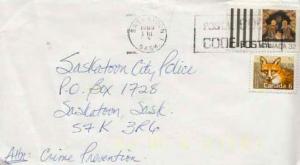 SASKATOON
SASK.
CODE POSTAL
Canada 6
Saskatoon City Police
P.O. Box 1728
Saskatoon, Sask.
S7K 3R6
Attn: Crime Prevention.